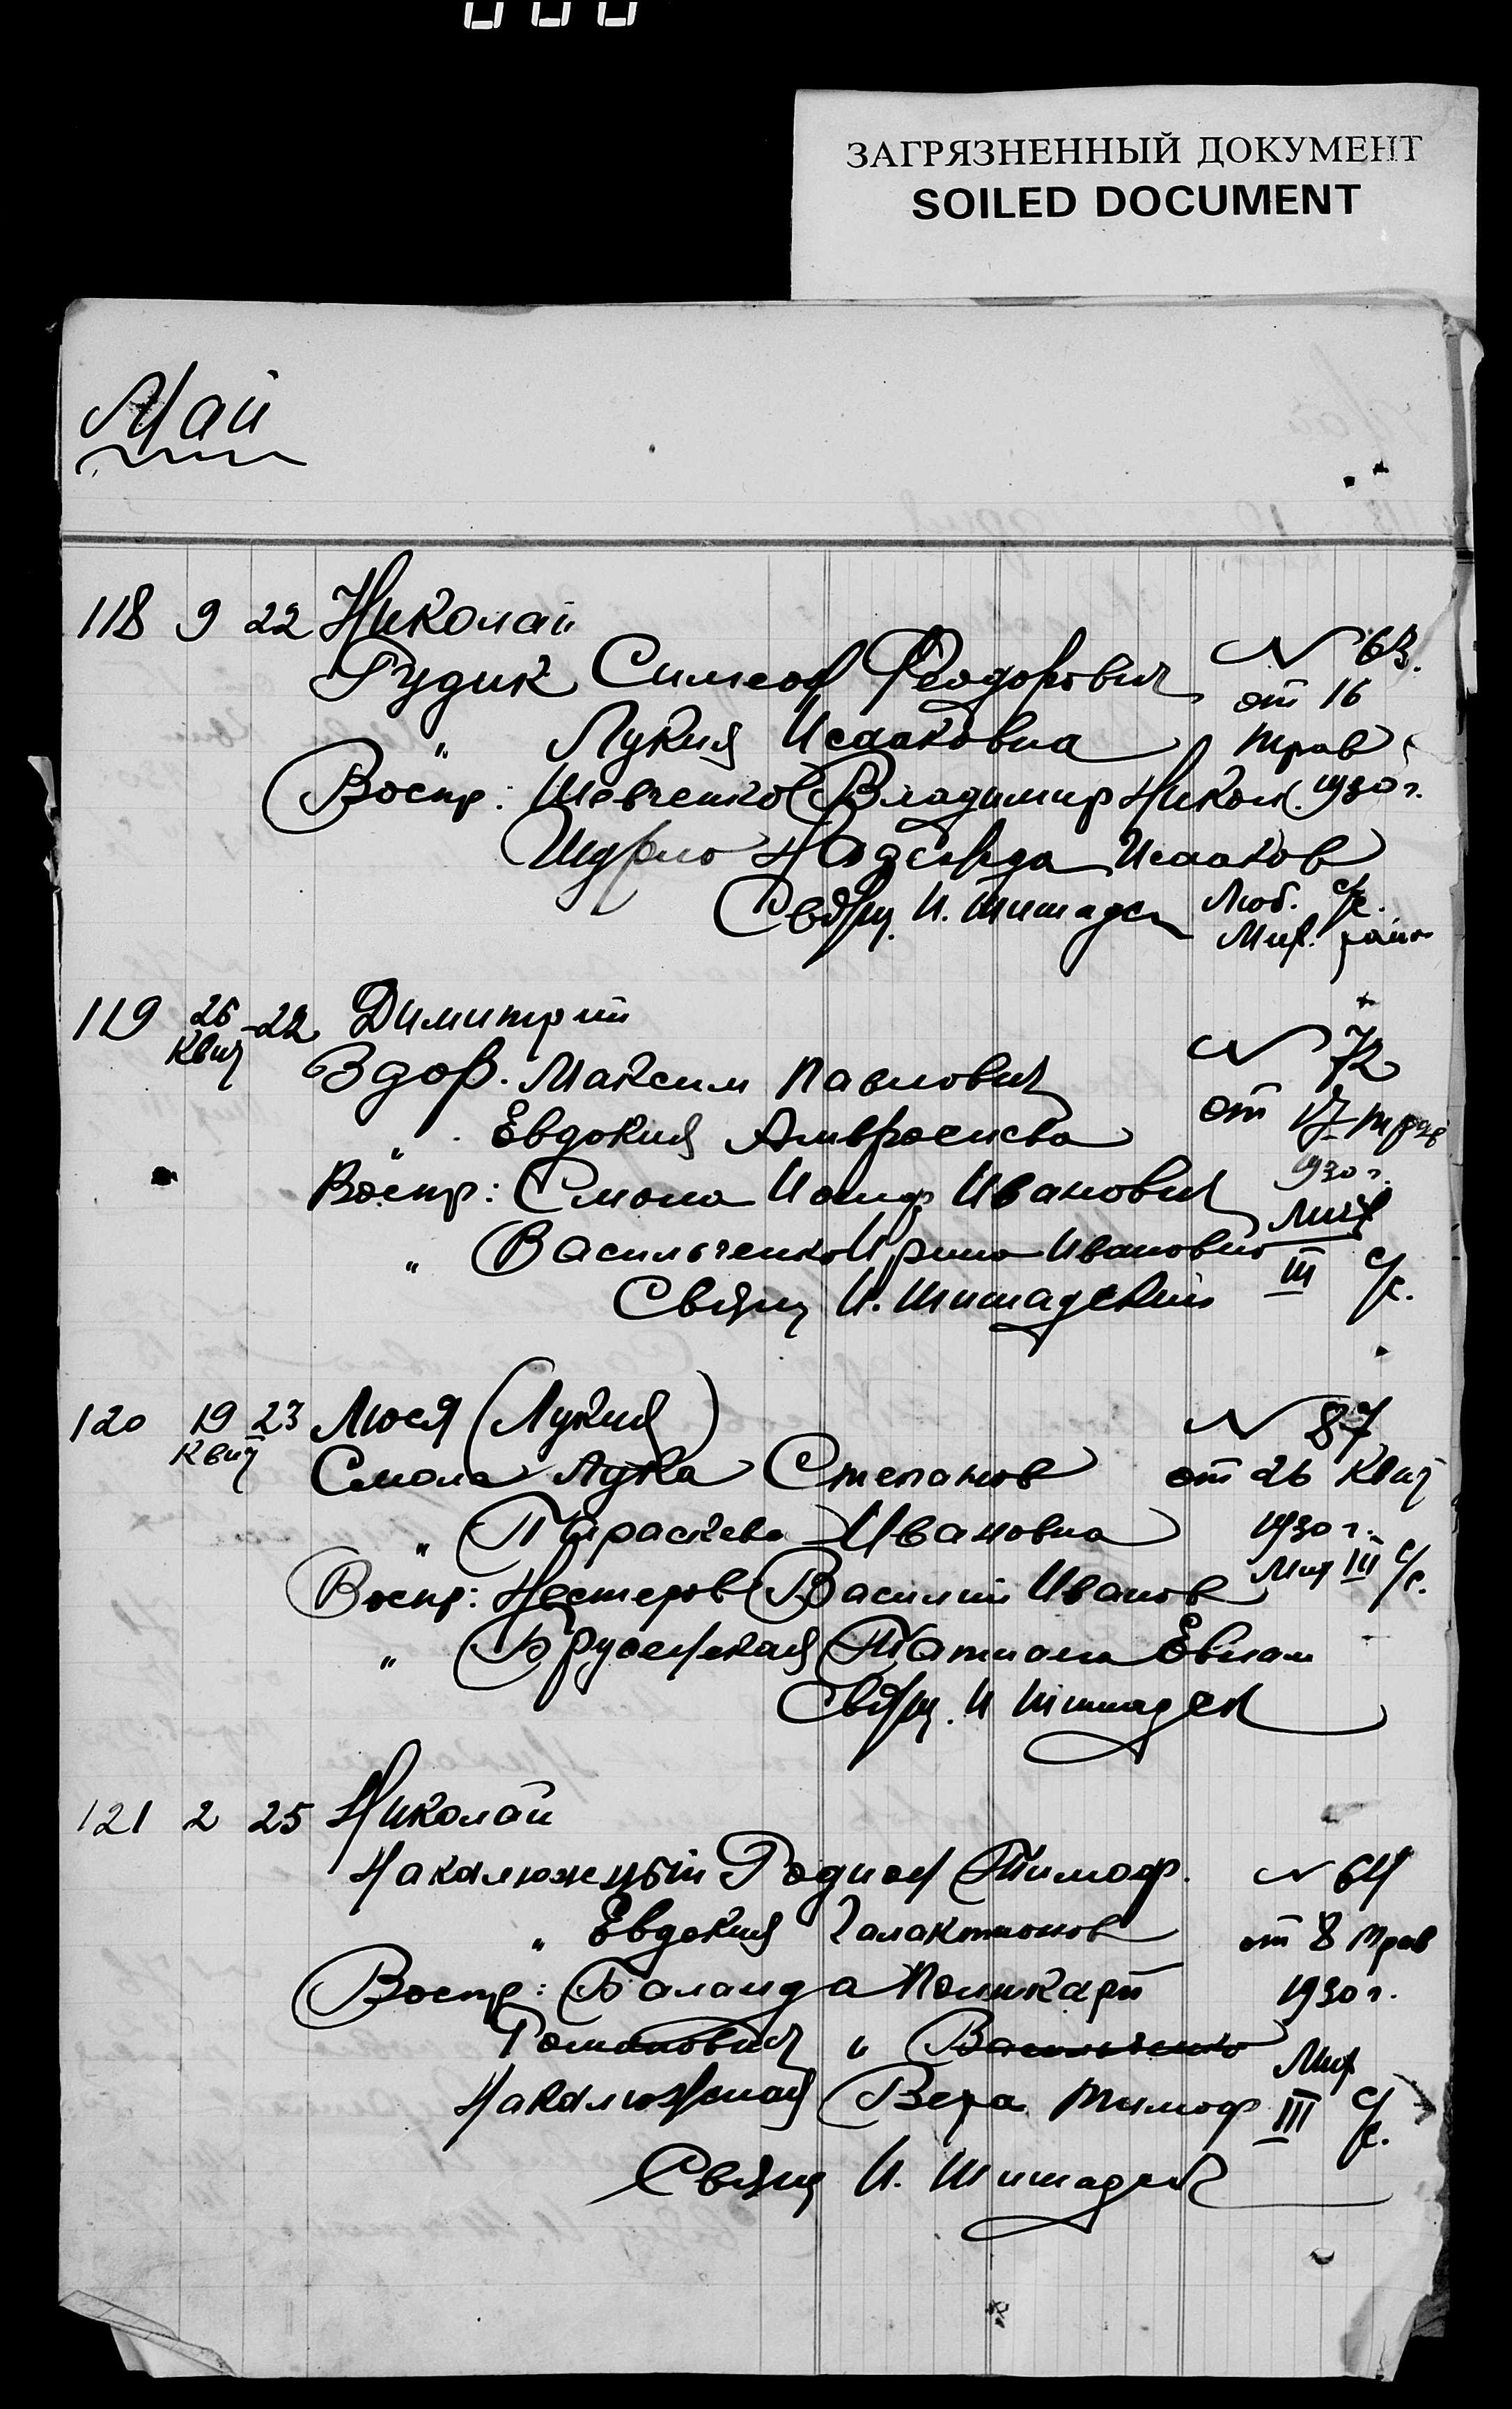 ЗАГРЯЗНЕННЫЙ ДОКУМЕНТ
SOILED DOCUMENT
Май
118 9 22 Николай
Рудик Симеон Феодорович № 63.
от 16
" Лукия Исааковна трав
Воспр: Шевченко Владимир Никол. 1930 г.
Надежда Исааков
Свящ. И. Шишадск Люб. с/с.
Мир. район
119 26 Квіт 22 Димитрий
Здор. Максим Павлович № 72
" Евдокия Амвросиева от 17 трав
1930 г.
Воспр: Смола Иосиф Ивановић Мир
" Васильченко Ирина Ивановна III с/с.
Свящ И. Шишадский
120 19 Квіт 23 Люся (Лукия) № 87
Смола Лука Степанов от 26 Квіт
" Параскева Ивановна 1930 г.
Воспр: Нестеров Василий Иванов Мир III с/с.
" Татиана Евлам
Свящ. И Шишадск
121 2 25 Николай
Накалюжный Родион Тимоф. № 64
" Евдокия Галактионов от 8 трав
Воспр: Баланда Поликарп 1930 г.
Романович " Васильченко Мир
Накалюжная Вера Тимоф III с/с.
Свящ И. Шишадск